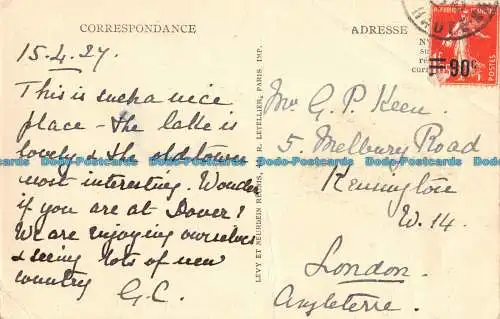 CORRESPONDANCE
ADRESSE
15.4.27.
This is such a nice
place - the lake is
lovely & the old town
most interesting. Wonder
if you are at Dover!
We are enjoying ourselves
& seeing lots of new
country G.C.
LEVY ET NEURDEIN REUNIS, R. LETELLIER, PARIS IMP.
90c
POSTES
Mr G. P. Keen.
5. Melbury Road
Kensington
W. 14.
London.
Angleterre.
Dodo-Postcards Dodo-Postcards Dodo-Postcards Dodo-Postcards Dodo-Postcards